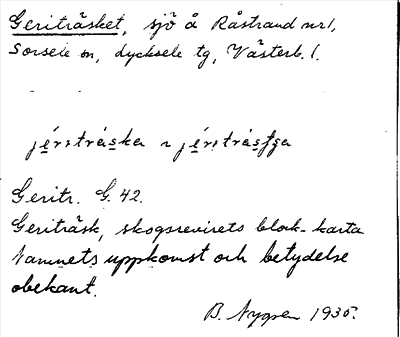 Geriträsket, sjö å Råstrand nr 1,
Sorsele sn, Lycksele tg, Västerb. l.
Geritr. G. 42.
Geriträsk, skogsrevirets blok-karta
Namnets uppkomst och betydelse
obekant.
B. Nygren 1935.